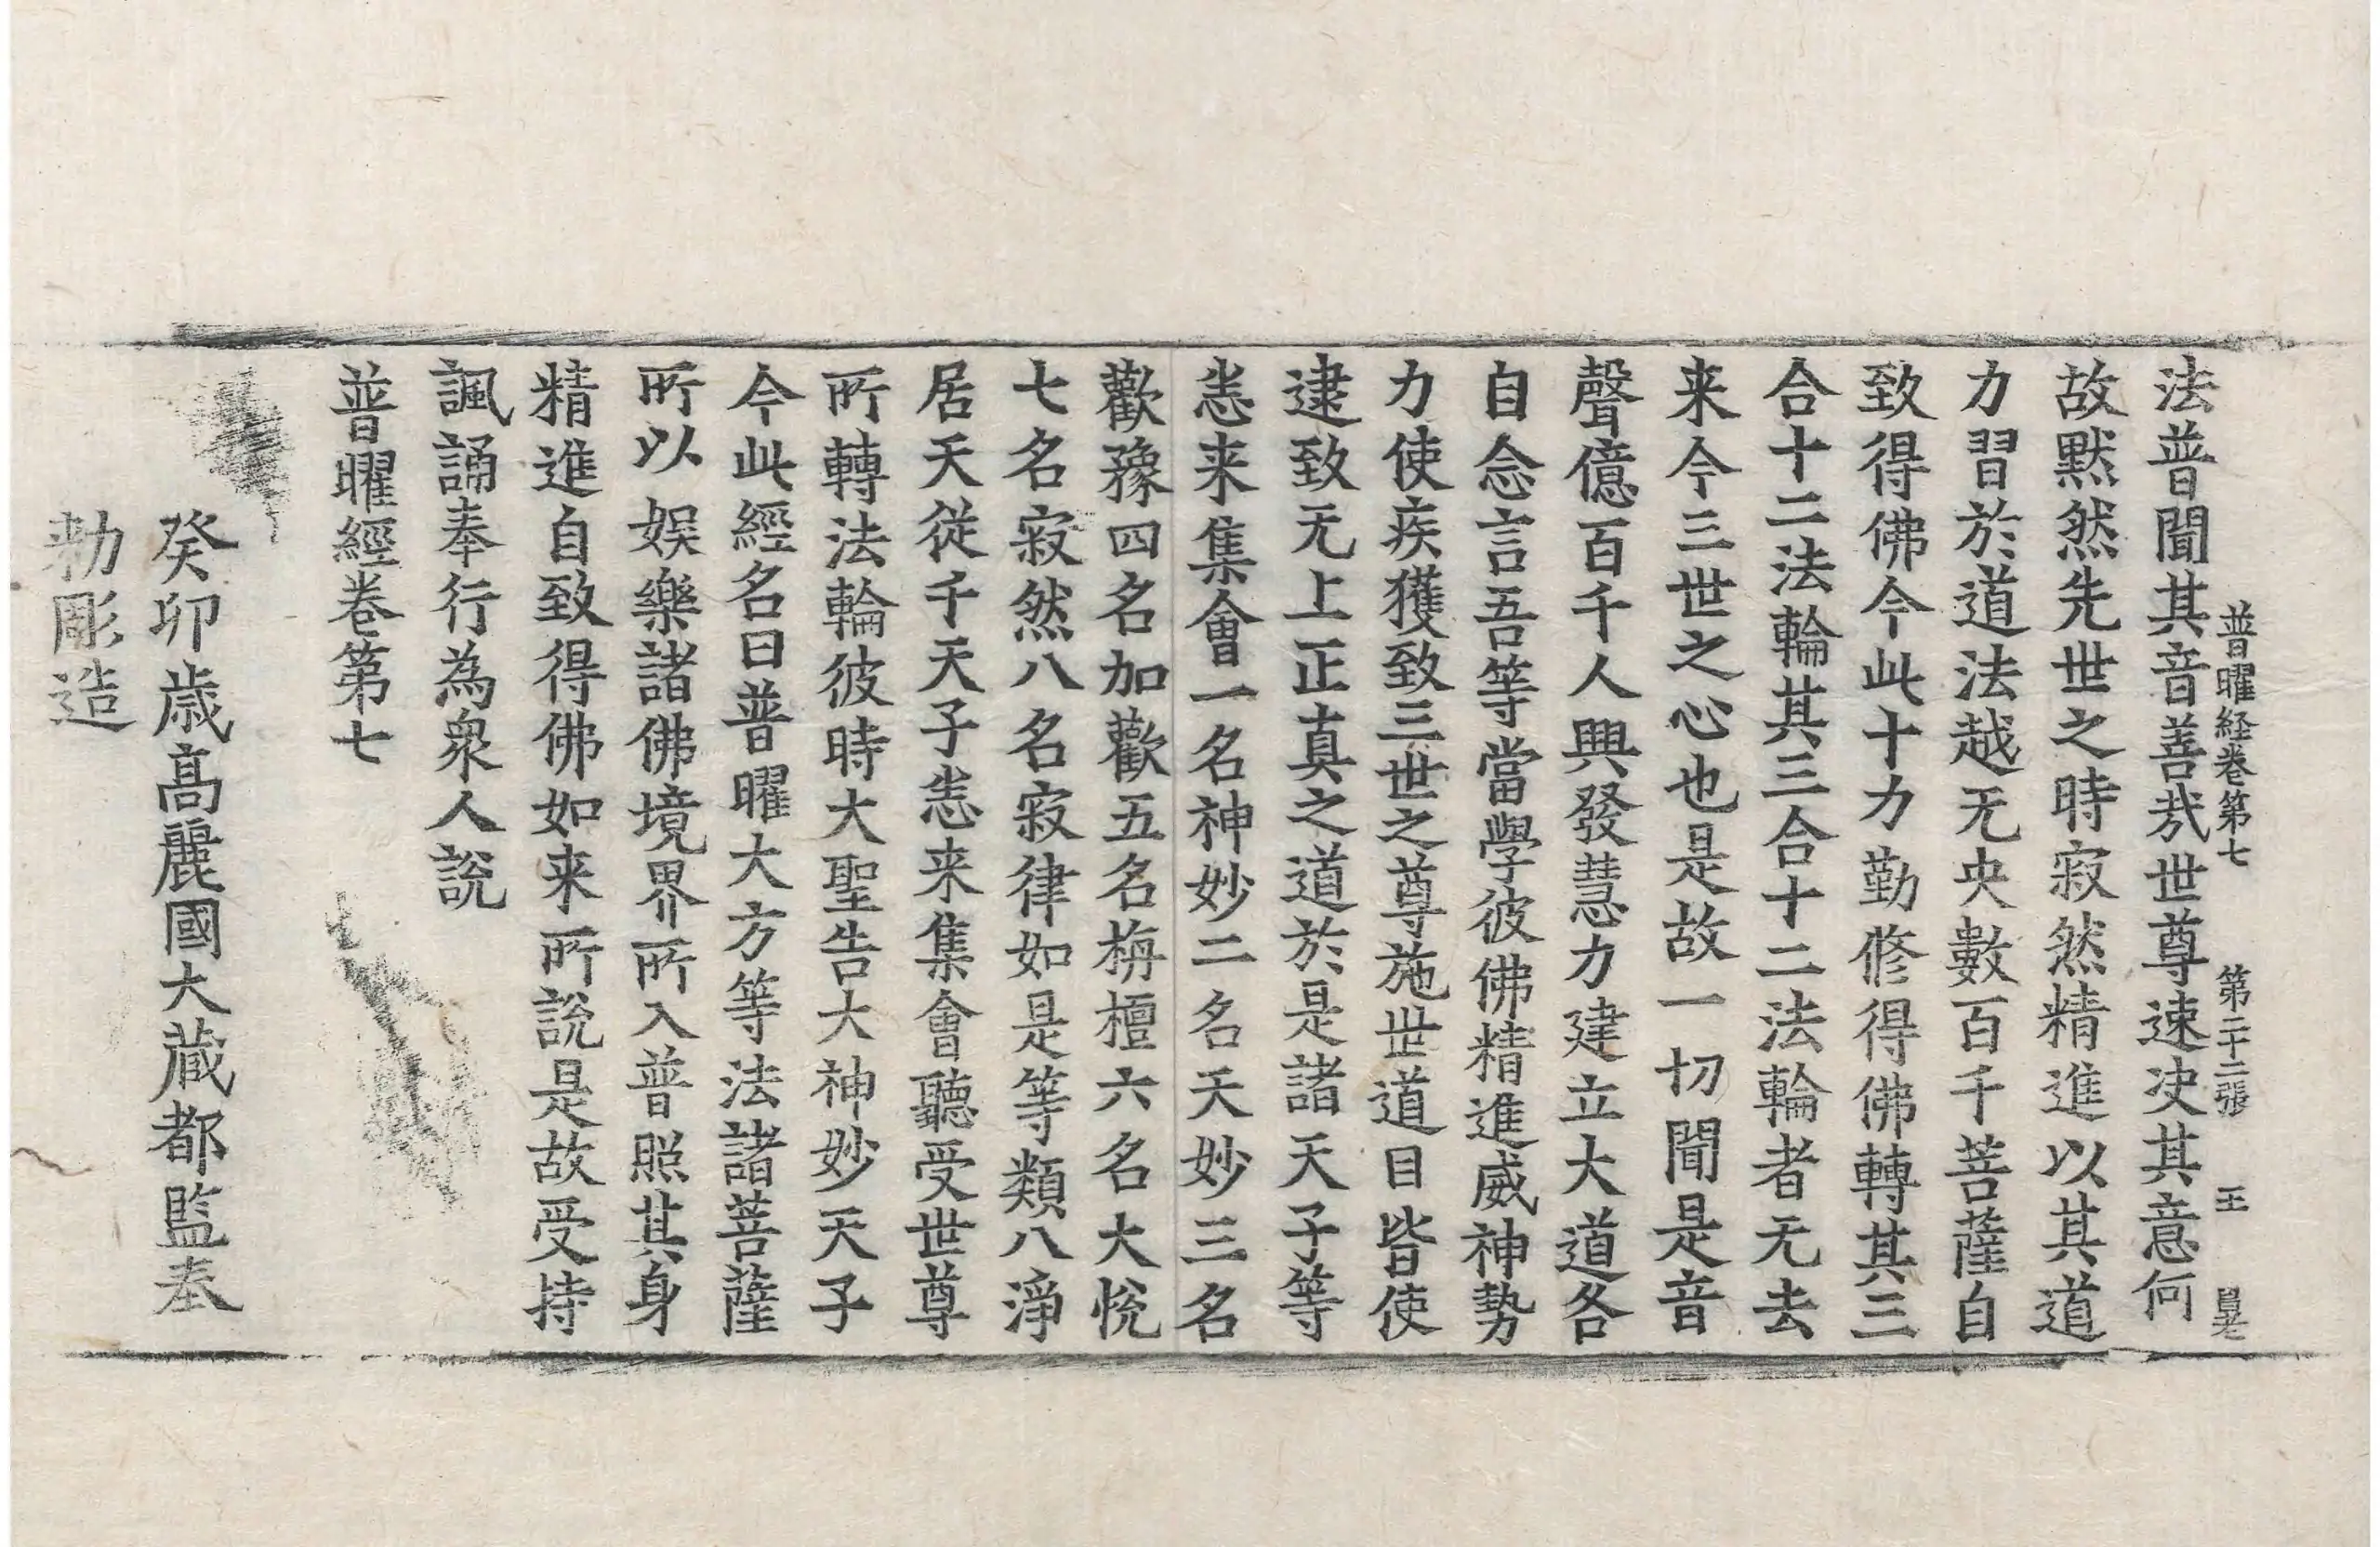 普曜経卷第七 第二十二張 王
法普聞其音善哉世尊速决其意何
故默然先世之時寂然精進以其道
力習於道法越无央數百千菩薩自
致得佛今此十力勤修得佛轉其三
合十二法輪其三合十二法輪者无去
来今三世之心也是故一切聞是音
聲億百千人興發慧力建立大道各
自念言吾等當學彼佛精進威神勢
力使疾獲致三世之尊施世道目皆使
逮致无上正真之道於是諸天子等
悉来集會一名神妙二名天妙三名
歡豫四名加歡五名栴檀六名大悅
七名寂然八名寂律如是等類八淨
居天從千天子悉来集會聽受世尊
所轉法輪彼時大聖告大神妙天子
今此經名曰普曜大方等法諸菩薩
所以娛樂諸佛境界所入普照其身
精進自致得佛如来所說是故受持
諷誦奉行為衆人說
普曜經卷第七
癸卯歲高麗國大藏都監奉
勅彫造